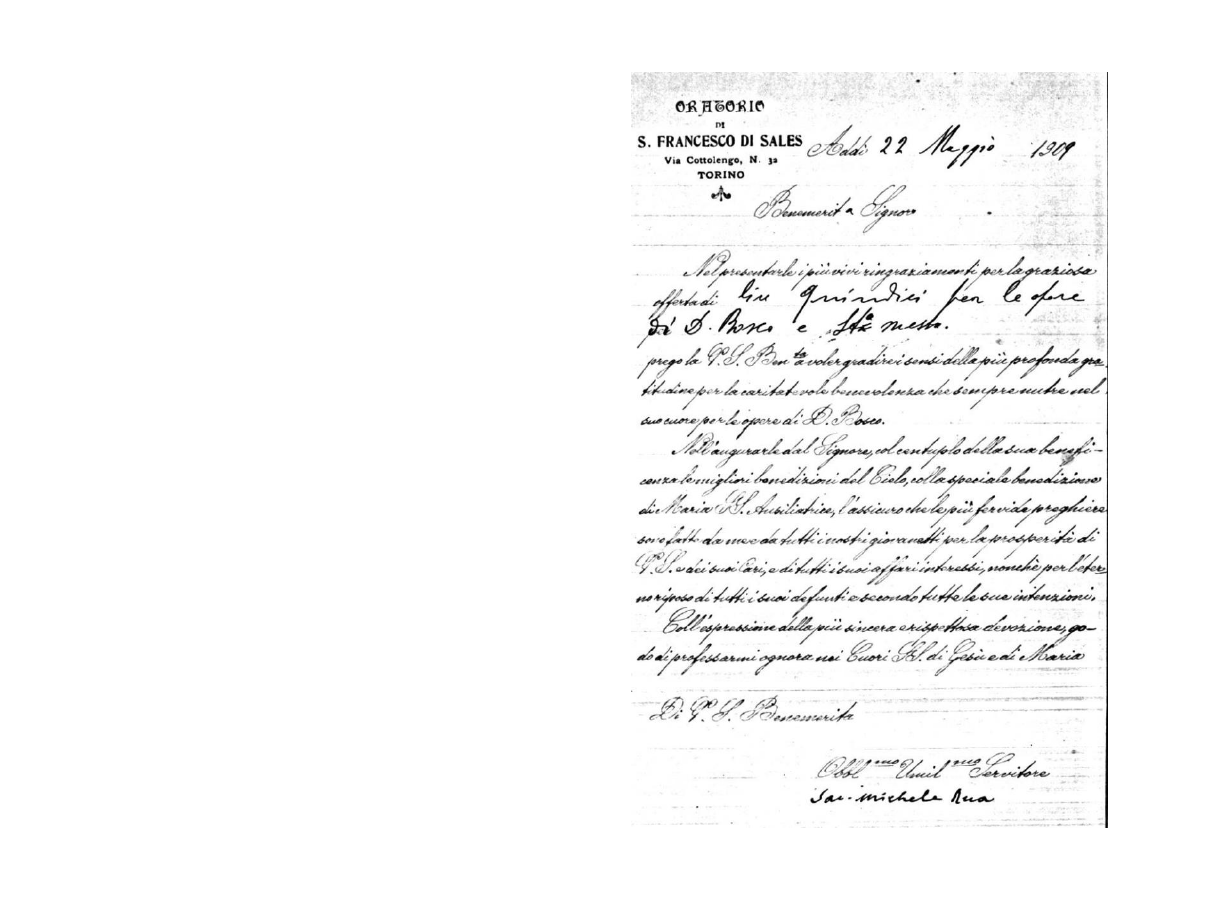 ORATORIO
DI
S. FRANCESCO DI SALES
Via Cottolengo, N. 32
TORINO
Addì 22 Maggio 1909
Benemerita Signora
Nel presentarle i più vivi ringraziamenti per la graziosa
offerta di lire quindici per le opere
di D. Bosco e Sta messa.
prego la V. S. Benta a voler gradire i sensi della più profonda gra-
titudine per la caritatevole benevolenza che sempre nutre nel
suo cuore per le opere di D. Bosco.
Nell'augurarle dal Signore, col centuplo della sua benefi-
cenza le migliori benedizioni del Cielo, colla speciale benedizione
di Maria SS. Ausiliatrice, l'assicuro che le più fervide preghiere
sono fatte da me e da tutti i nostri giovanetti per la prosperità di
V. S. e dei suoi Cari, e di tutti i suoi affari interessi, nonchè per l'eter
no riposo di tutti i suoi defunti e secondo tutte le sue intenzioni.
Coll'espressione della più sincera e rispettosa devozione, go-
do di professarmi ognora nei Cuori SS. di Gesù e di Maria
Di V. S. Benemerita
Obblmo Umilmo Servitore
Sac. Michele Rua